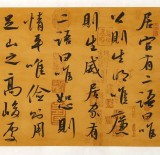 居官有二語曰唯
公則生明唯廉
則生威居家有
二語曰唯恕則
情平唯儉則用
足山之高峻處